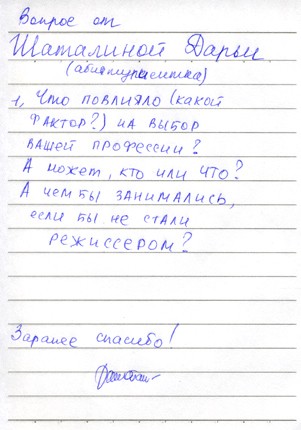 Вопрос от
Шаталиной Дарьи
(абитуриентка)
1, Что повлияло (какой
фактор?) на выбор
вашей профессии?
А может, кто или что?
А чем бы занимались,
если бы не стали
режиссером?
Заранее спасибо!